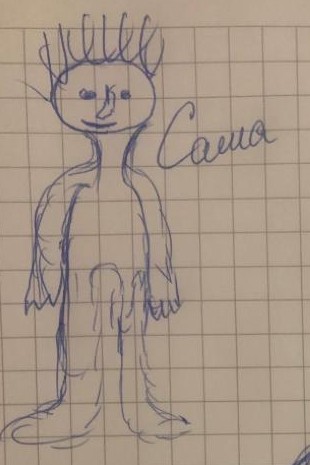 Саша